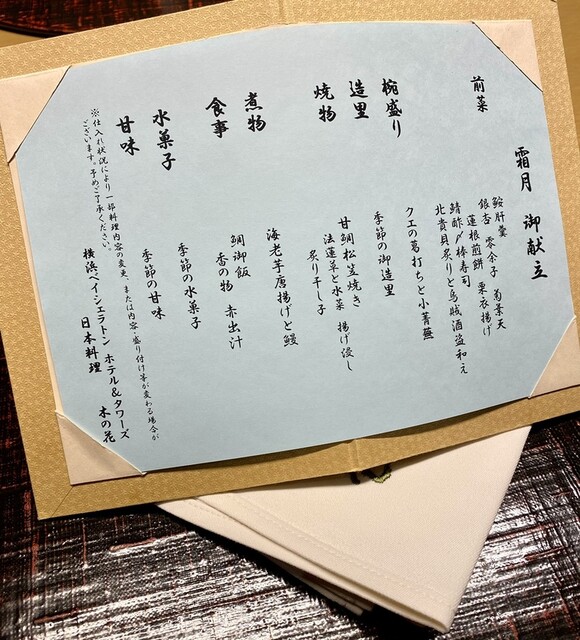 霜月 御献立
前菜
鮟肝羹
銀杏 零余子 菊葉天
蓮根煎餅 栗衣揚げ
鯖酢〆棒寿司
北貴貝炙りと烏賊酒盗和え
椀盛り
クエの葛打ちと小菁蕪
造里
季節の御造里
焼物
甘鯛松笠焼き
法蓮草と水菜 揚げ浸し
炙り干し子
煮物
海老芋唐揚げと鰻
食事
鯛御飯
香の物 赤出汁
水菓子
季節の水菓子
甘味
季節の甘味
※仕入れ状況により一部料理内容の変更、または内容・盛り付け等が変わる場合が
ございます。予めご了承ください。
横浜ベイシェラトン ホテル&タワーズ
日本料理 木の花